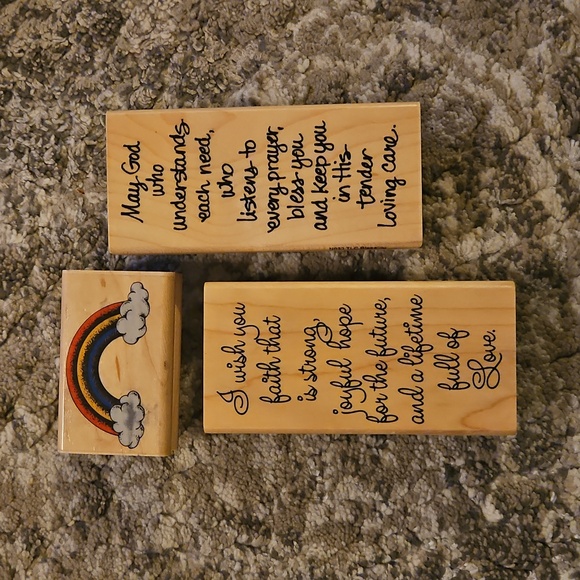 May God
who
understands
each need,
who
listens to
every prayer,
bless you
and keep you
in His
tender
loving care.
I wish you
faith that
is strong,
joyful hope
for the future,
and a lifetime
full of
Love.